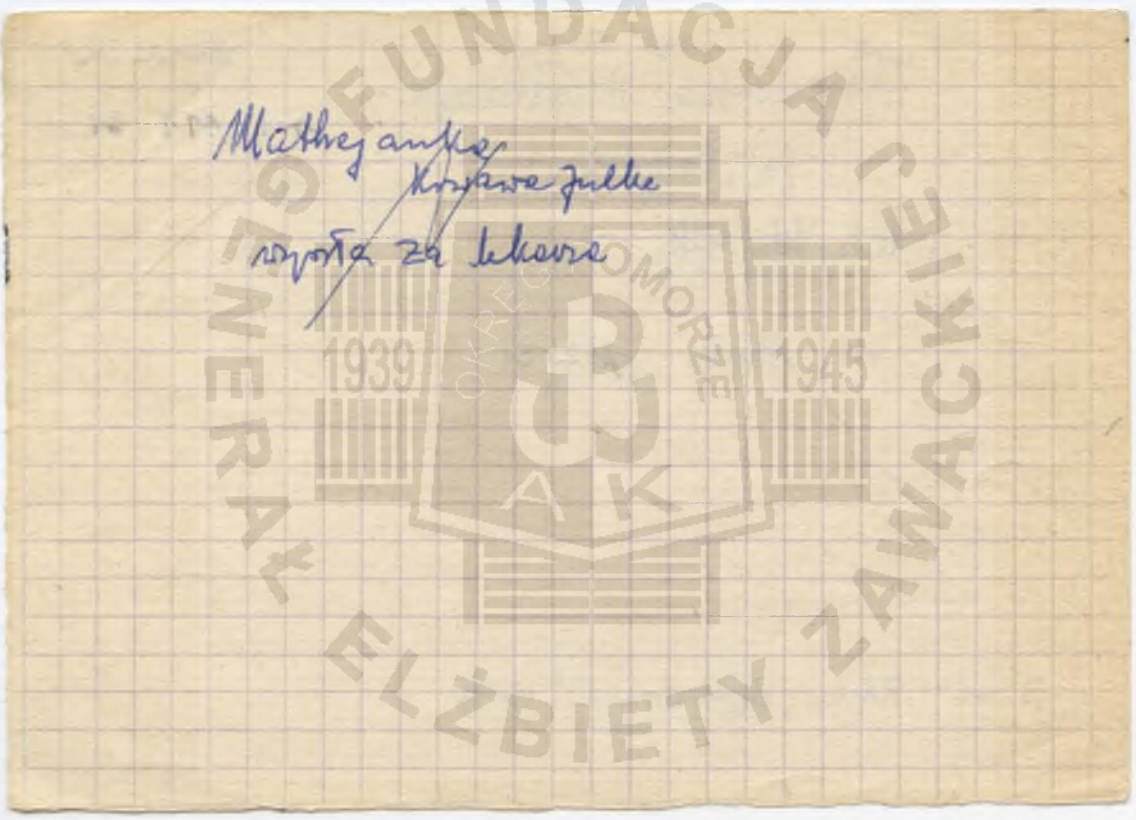 Mathejanka
Krwawa Julke
wyszła za lekarza
FUNDACJA
GENERAŁ ELŻBIETY ZAWACKIEJ
OKRĘG POMORZE
1939 1945
AK